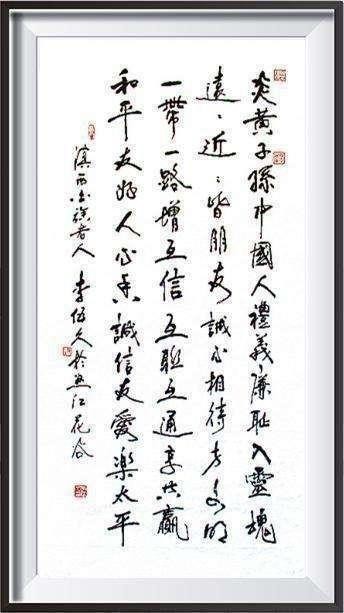 炎黄子孫中國人禮義廉耻入靈魂
遠遠近近皆朋友誠心相待
一帶一路增互信互聯互通享共贏
和平友好人心誠信友愛樂太平
滇西人 李伍久於江花谷